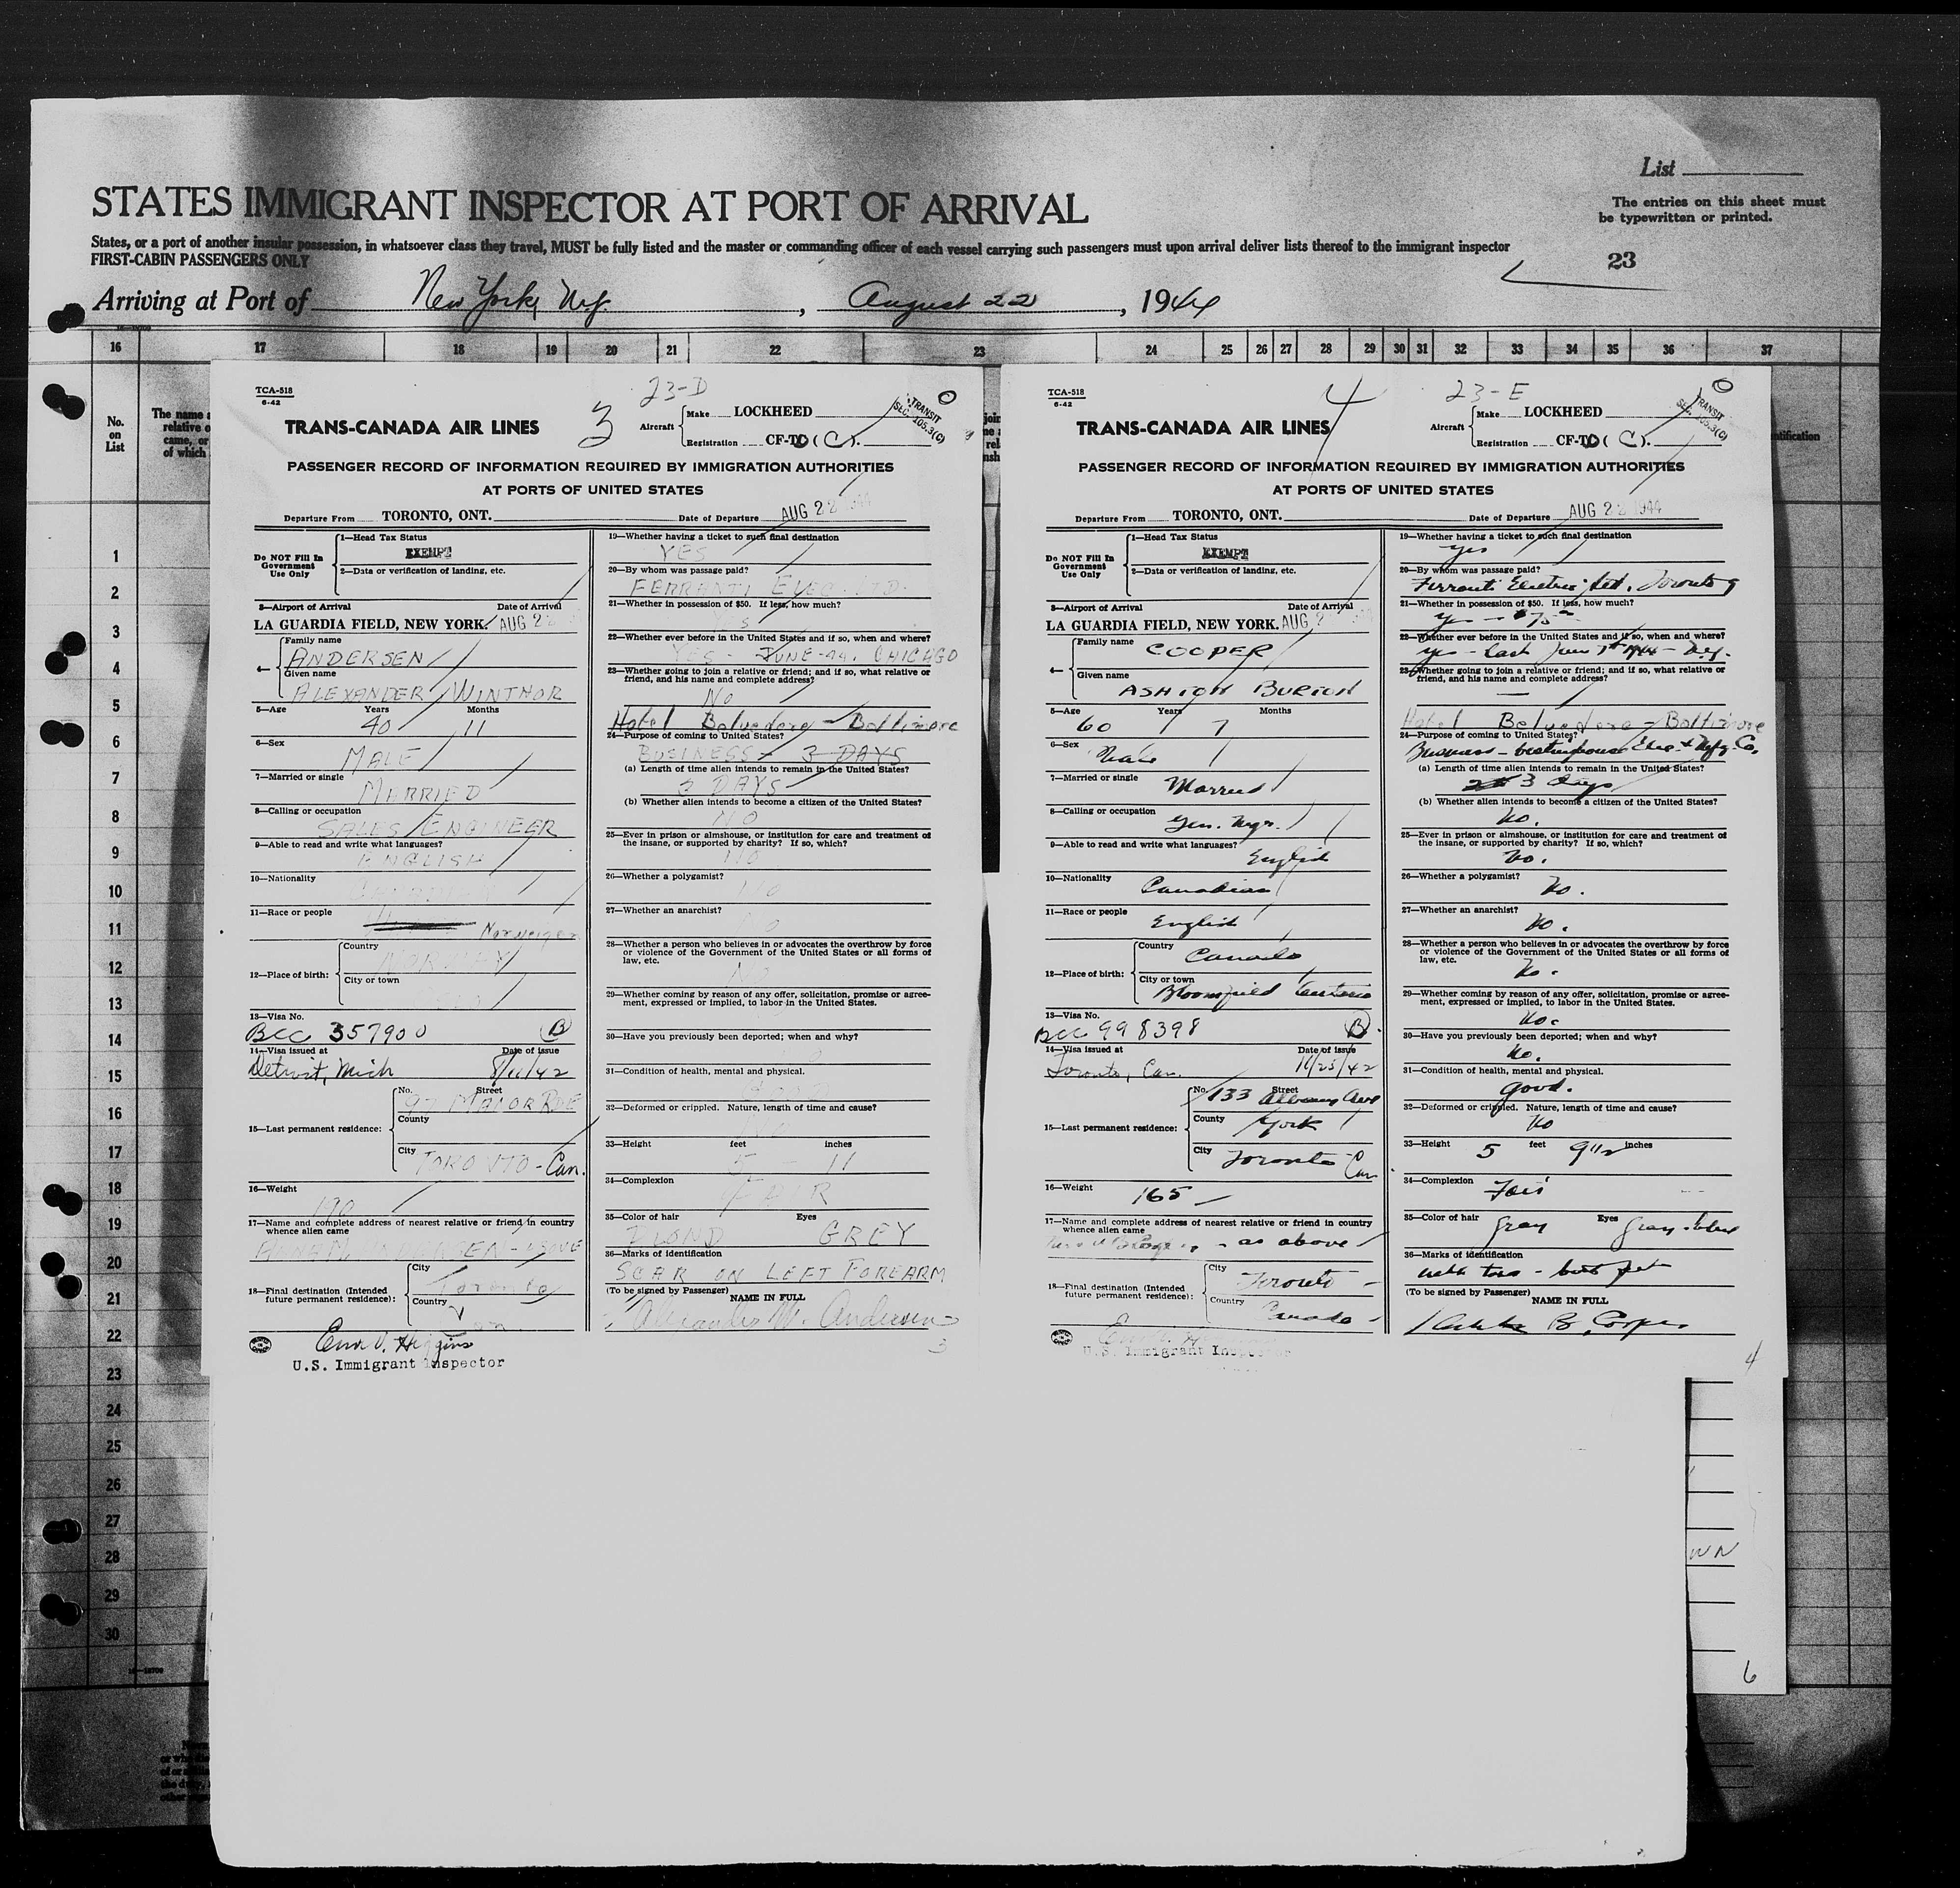 List
STATES IMMIGRANT INSPECTOR AT PORT OF ARRIVAL
The entries on this sheet must
be typewritten or printed.
States, or a port of another insular possession, in whatsoever class they travel, MUST be fully listed and the master or commanding officer of each vessel carrying such passengers must upon arrival deliver lists thereof to the immigrant inspector
FIRST-CABIN PASSENGERS ONLY
23
Arriving at Port of New York, N.Y. , August 22 , 1944
16 17 18 19 20 21 22 23 24 25 26 27 28 29 30 31 32 33 34 35 36 37
No.
on
List
The name a
relative o
came, or
of which
1
2
3
4
5
6
7
8
9
10
11
12
13
14
15
16
17
18
19
20
21
22
23
24
25
26
27
28
29
30
TCA-518
6-42
23-D
3
TRANS-CANADA AIR LINES
Aircraft
Make LOCKHEED
Registration CF-TC ( C ).
TRANSIT
SEC. 105.3(C)
PASSENGER RECORD OF INFORMATION REQUIRED BY IMMIGRATION AUTHORITIES
AT PORTS OF UNITED STATES
Departure From TORONTO, ONT. Date of Departure AUG 22 1944
Do NOT Fill In
Government
Use Only
1—Head Tax Status
EXEMPT
2—Data or verification of landing, etc.
3—Airport of Arrival Date of Arrival
LA GUARDIA FIELD, NEW YORK. AUG 22
4— Family name
ANDERSEN
Given name
ALEXANDER WINTHOR
5—Age Years Months
40 11
6—Sex
MALE
7—Married or single
MARRIED
8—Calling or occupation
SALES ENGINEER
9—Able to read and write what languages?
ENGLISH
10—Nationality
11—Race or people
Norwegian
12—Place of birth:
Country
NORWAY
City or town
13—Visa No.
BCC 357900 B
14—Visa issued at Date of issue
Detroit, Mich 8/11/42
15—Last permanent residence:
No. Street
97 MANOR RD E
County
City
TORONTO - Can.
16—Weight
170
17—Name and complete address of nearest relative or friend in country
whence alien came
ANDERSEN - ABOVE
18—Final destination (Intended
future permanent residence):
City
Toronto
Country
U.S. Immigrant Inspector
19—Whether having a ticket to such final destination
YES
20—By whom was passage paid?
FERRANTI ELEC. LTD.
21—Whether in possession of $50. If less, how much?
22—Whether ever before in the United States and if so, when and where?
YES - JUNE-44. CHICAGO
23—Whether going to join a relative or friend; and if so, what relative or
friend, and his name and complete address?
No
Hotel Belvedere - Baltimore
24—Purpose of coming to United States?
BUSINESS - 3 DAYS
(a) Length of time alien intends to remain in the United States?
3 DAYS
(b) Whether alien intends to become a citizen of the United States?
NO
25—Ever in prison or almshouse, or institution for care and treatment of
the insane, or supported by charity? If so, which?
NO
26—Whether a polygamist?
NO
27—Whether an anarchist?
28—Whether a person who believes in or advocates the overthrow by force
or violence of the Government of the United States or all forms of
law, etc.
NO
29—Whether coming by reason of any offer, solicitation, promise or agree-
ment, expressed or implied, to labor in the United States.
30—Have you previously been deported; when and why?
31—Condition of health, mental and physical.
32—Deformed or crippled. Nature, length of time and cause?
33—Height feet inches
5 - 11
34—Complexion
FAIR
35—Color of hair Eyes
BLOND GREY
36—Marks of identification
SCAR ON LEFT FOREARM
(To be signed by Passenger) NAME IN FULL
Alexander W. Andersen
3
TCA-518
6-42
4
23-E
TRANS-CANADA AIR LINES
Aircraft
Make LOCKHEED
Registration CF-TC ( C ).
TRANSIT
SEC. 105.3(C)
PASSENGER RECORD OF INFORMATION REQUIRED BY IMMIGRATION AUTHORITIES
AT PORTS OF UNITED STATES
Departure From TORONTO, ONT. Date of Departure AUG 22 1944
Do NOT Fill In
Government
Use Only
1—Head Tax Status
EXEMPT
2—Data or verification of landing, etc.
3—Airport of Arrival Date of Arrival
LA GUARDIA FIELD, NEW YORK. AUG 2
4— Family name
COOPER
Given name
ASHTON BURTON
5—Age Years Months
60 7
6—Sex
Male
7—Married or single
Married
8—Calling or occupation
Gen. Mgr.
9—Able to read and write what languages?
English
10—Nationality
Canadian
11—Race or people
English
12—Place of birth:
Country
Canada
City or town
Bloomfield Ontario
13—Visa No.
BCC 998398 B
14—Visa issued at Date of issue
Toronto, Can. 11/25/42
15—Last permanent residence:
No. Street
133 Albany Ave
County
York
City
Toronto Can
16—Weight
165
17—Name and complete address of nearest relative or friend in country
whence alien came
- as above
18—Final destination (Intended
future permanent residence):
City
Toronto
Country
Canada
U.S. Immigrant Inspector
19—Whether having a ticket to such final destination
yes
20—By whom was passage paid?
Ferranti Electric Ltd. Toronto
21—Whether in possession of $50. If less, how much?
yes - $75
22—Whether ever before in the United States and if so, when and where?
yes - Last June 1st 1944 - N.Y.
23—Whether going to join a relative or friend; and if so, what relative or
friend, and his name and complete address?
—
Hotel Belvedere - Baltimore
24—Purpose of coming to United States?
Business - Westinghouse Elec. & Mfg. Co.
(a) Length of time alien intends to remain in the United States?
3 days
(b) Whether alien intends to become a citizen of the United States?
No.
25—Ever in prison or almshouse, or institution for care and treatment of
the insane, or supported by charity? If so, which?
No.
26—Whether a polygamist?
No.
27—Whether an anarchist?
No.
28—Whether a person who believes in or advocates the overthrow by force
or violence of the Government of the United States or all forms of
law, etc.
No.
29—Whether coming by reason of any offer, solicitation, promise or agree-
ment, expressed or implied, to labor in the United States.
No.
30—Have you previously been deported; when and why?
No.
31—Condition of health, mental and physical.
good.
32—Deformed or crippled. Nature, length of time and cause?
No
33—Height feet inches
5 9 1/2
34—Complexion
Fair
35—Color of hair Eyes
Gray Gray-blue
36—Marks of identification
web toes - both feet
(To be signed by Passenger) NAME IN FULL
Ashton B. Cooper
4
WN
6